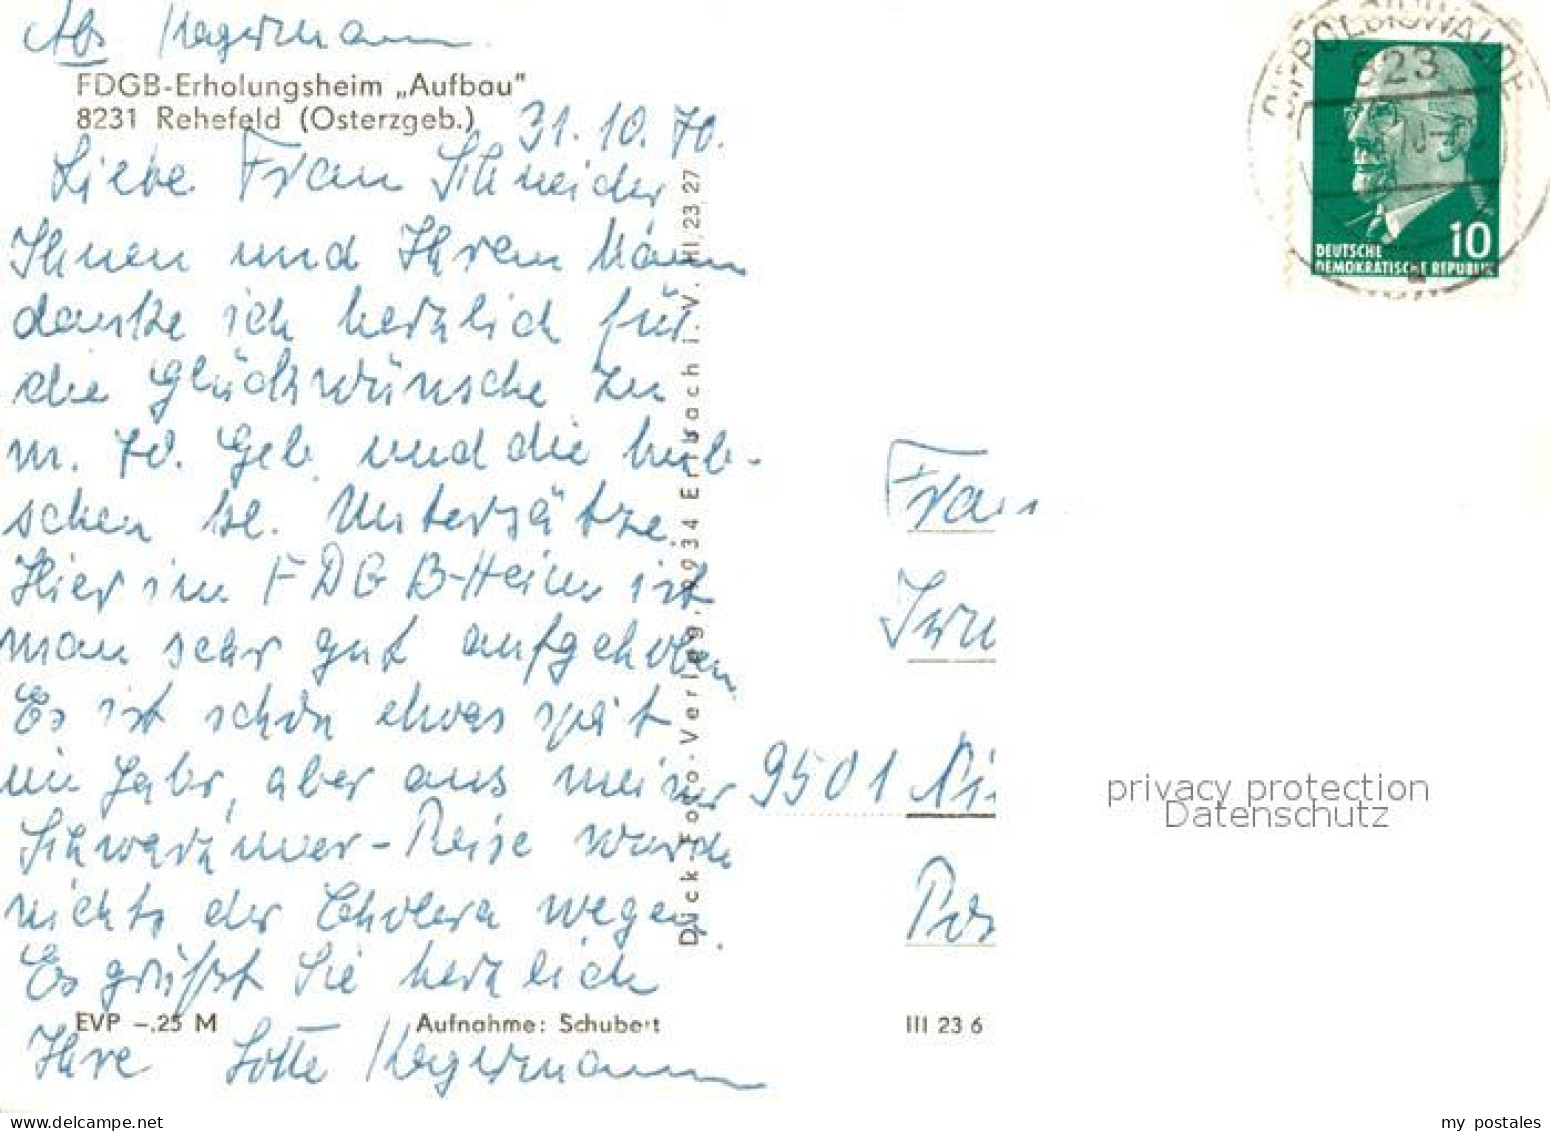 Abs Hagermann
FDGB-Erholungsheim „Aufbau"
8231 Rehefeld (Osterzgeb.)
31.10.70.
Liebe Frau Schneider
Ihnen und Ihrem Mann
danke ich herzlich für
die Glückwünsche zu
m. 70. Geb. und die hüb-
schen kl. Untersätze.
Hier im FDGB-Heim ist
man sehr gut aufgehoben.
Es ist schön etwas spät
im Jahr, aber aus meiner
Schwarzmeer-Reise wurde
nichts der Cholera wegen.
Es grüßt Sie herzlich
Ihre Lotte Hagermann
EVP -.25 M
Aufnahme: Schubert
III 23 6
Dick-Foto-Verlag, 9934 Erlbach i. V. HI 23 27
DIPPOLDISWALDE
823
DEUTSCHE
DEMOKRATISCHE REPUBLIK
10
Frau
Irm
9501
privacy protection
Datenschutz
my postales